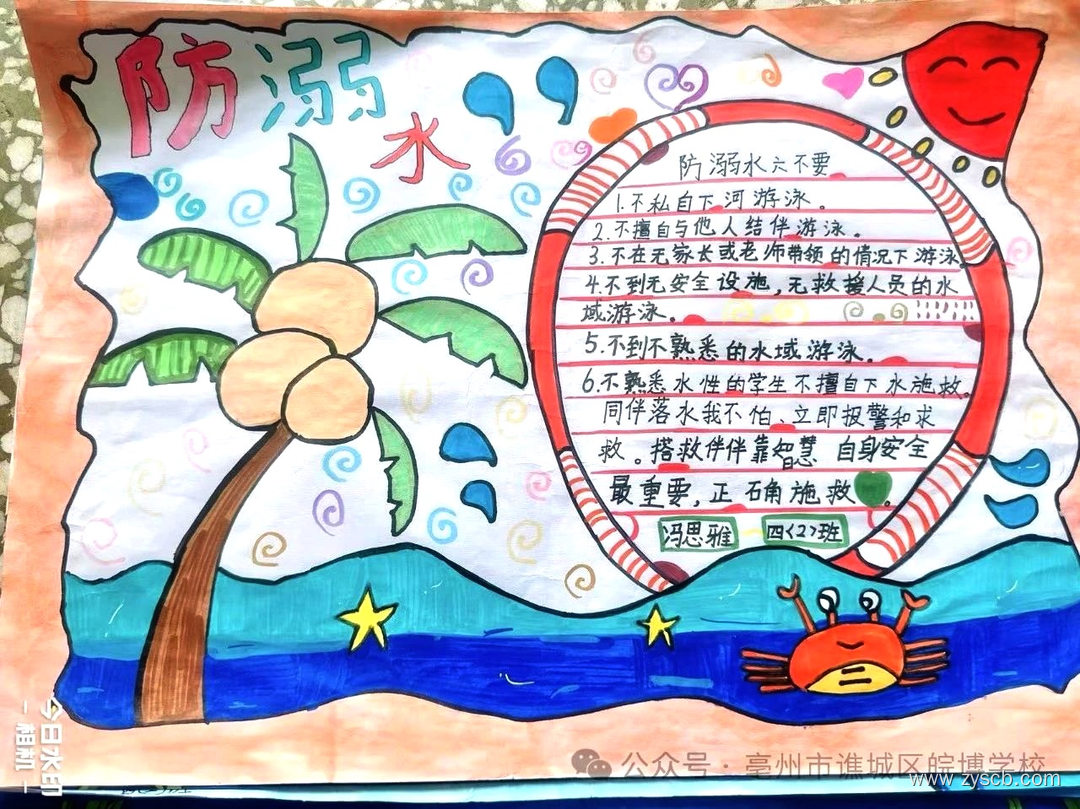 防溺
水
防溺水六不要
1.不私自下河游泳。
2.不擅自与他人结伴游泳。
3.不在无家长或老师带领的情况下游泳。
4.不到无安全设施,无救援人员的水
域游泳。
5.不到不熟悉的水域游泳。
6.不熟悉水性的学生不擅自下水施救。
同伴落水我不怕、立即报警和求
救。搭救伴伴靠智慧 自身安全
最重要,正石角施救。
冯思雅 四(2)班
今日水印
相机
公众号·亳州市谯城区皖博学校
www.zyscb.com